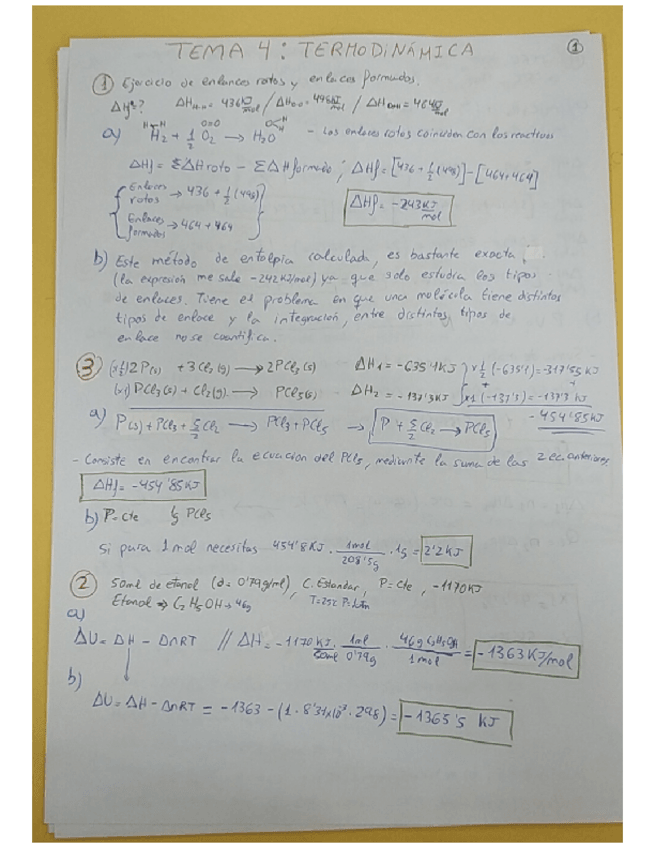 TEMA 4: TERMODINÁMICA
1
1 Ejercicio de enlances rotos y enlaces formados.
ΔHf°? ΔH H-H = 436 KJ/mol / ΔH O=O = 498 KJ/mol / ΔH O-H = 464 KJ/mol
H-H O=O O<H H
a) H2 + 1/2 O2 → H2O - Los enlaces rotos coinciden con los reactivos
ΔHf = ΣΔH roto - ΣΔH formado ; ΔHf = [436 + 1/2 (498)] - [464+464]
Enlaces rotos → 436 + 1/2 (498)
Enlaces formados → 464 + 464
ΔHf = -243 KJ/mol
b) Este método de entalpia calculada, es bastante exacta
(la expresión me sale -242 KJ/mol) ya que solo estudia los tipos
de enlaces. Tiene el problema en que una molécula tiene distintos
tipos de enlace y la integración, entre distintos tipos de
enlace no se cuantifica.
3 (x1/2) 2P(s) + 3Cl2(g) → 2PCl3(s) ΔH1 = -635'1 KJ x 1/2 (-635'1) = -317'55 KJ
+
(x1) PCl3(s) + Cl2(g) → PCl5(s) ΔH2 = -137'3 KJ x1 (-137'3) = -137'3 KJ
-454'85 KJ
a) P(s) + PCl3 + 5/2 Cl2 → PCl3 + PCl5 → P + 5/2 Cl2 → PCl5
- Consiste en encontrar la ecuacion del PCl5, mediante la suma de las 2 ec. anteriores
ΔHf = -454'85 KJ
b) P = cte 1g PCl5
Si para 1 mol necesitas 454'8 KJ · 1mol/208'5g · 1g = 2'2 KJ
2 50ml de etanol (d = 0'79 g/ml), C. Estandar, P = cte, -1170 KJ
Etanol ⇒ C2H5OH → 46g T=25ºc P=1atm
a)
ΔU = ΔH - ΔnRT // ΔH = -1170 KJ/50ml · 1ml/0'79g · 46g C2H5OH/1mol = -1363 KJ/mol
b)
ΔU = ΔH - ΔnRT = -1363 - (1 · 8'31x10⁻³ · 298) = -1365'5 KJ